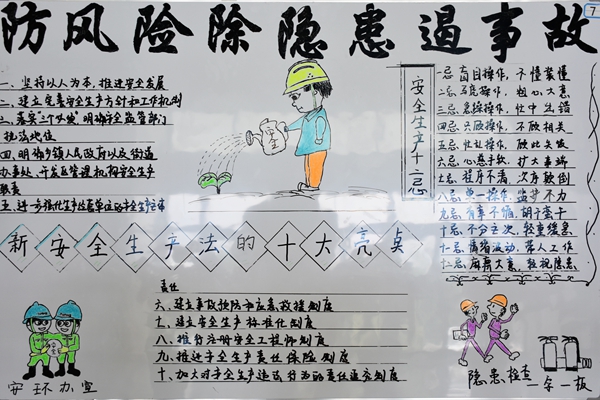 防风险除隐患遏事故
7
一、坚持以人为本,推进安全发展
二、建立完善安全生产方针和工作机制
三、落实"三个必须"明确安全监管部门
执法地位
四、明确乡镇人民政府以及街道
办事处、开发区管理机构安全生产
职责
五、进一步强化生产经营单位的安全生产主体
安全
安全生产十二忌
一忌 盲目操作,不懂装懂
二忌 马虎操作,粗心大意
三忌 急躁操作,忙中出错
四忌 只顾操作,不顾相关
五忌 忙乱操作,顾此失彼
六忌 心急求快,扩大事端
七忌 程序不清,次序颠倒
八忌 单一操作,监护不力
九忌 有章不循,胡干蛮干
十忌 不分主次,轻重缓急
十一忌 情绪波动,带人工作
十二忌 麻痹大意,轻视隐患
新安全生产法的十大亮点
责任
六、建立事故预防和应急救援制度
七、建立安全生产标准化制度
八、推行注册安全工程师制度
九、推进安全生产责任保险制度
十、加大对安全生产违法行为的责任追究制度
安环办宣
隐患检查